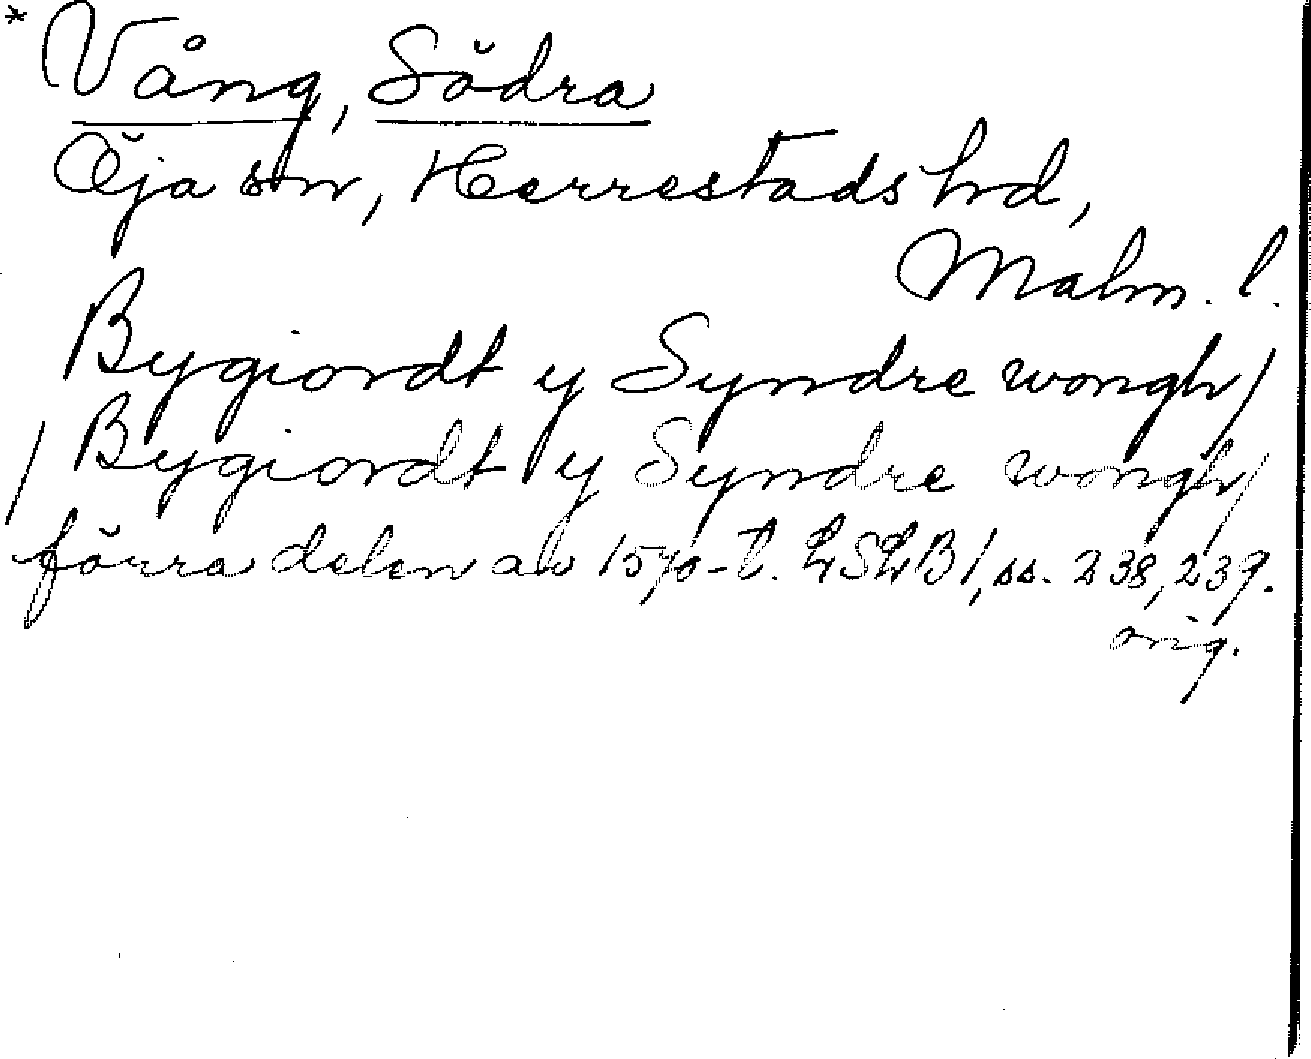 * Vång, Södra
Öja sn, Herrestads hd,
Malm. l.
Bygiordt y Syndre wongh/
/Bygiordt y Syndre wongh/
förra delen av 1570-t. LSLB1, ss. 238, 239.
orig.